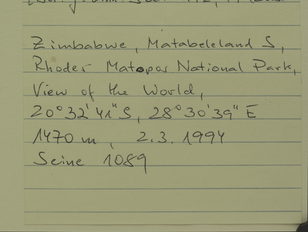 Zimbabwe, Matabeleland S,
Rhodes Matopos National Park,
View of the World,
20°32'41"S, 28°30'39"E
1470 m, 2.3.1994
Seine 1089